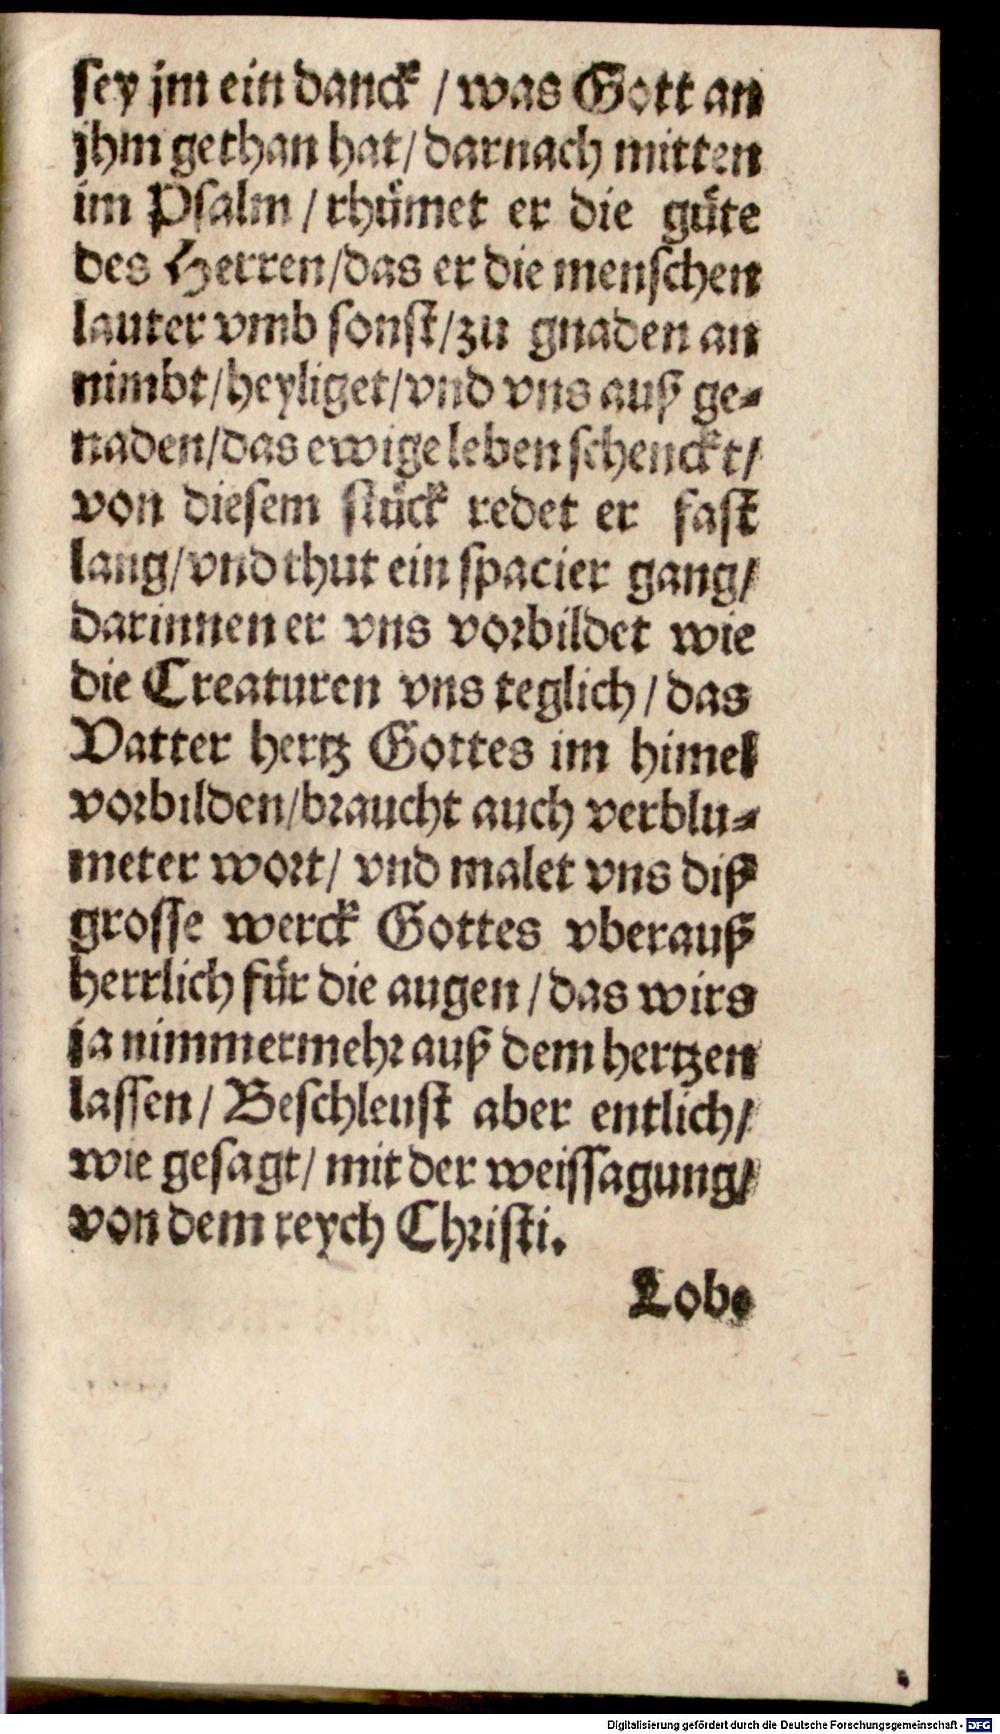 sey jm ein danck / was Gott an
jhm gethan hat / darnach mitten
im Psalm / rhümet er die güte
des Herren / das er die menschen
lauter vmb sonst / zu gnaden an
nimbt / heyliget / vnd vns auß ge-
naden / das ewige leben schenckt /
von diesem stück redet er fast
lang / vnd thut ein spacier gang /
darinnen er vns vorbildet wie
die Creaturen vns teglich / das
Vatter hertz Gottes im himel
vorbilden / braucht auch verblu-
meter wort / vnd malet vns diß
grosse werck Gottes vberauß
herrlich für die augen / das wirs
ja nimmermehr auß dem hertzen
lassen / Beschleust aber entlich /
wie gesagt / mit der weissagung /
von dem reych Christi.
Lobe
Digitalisierung gefördert durch die Deutsche Forschungsgemeinschaft - DFG